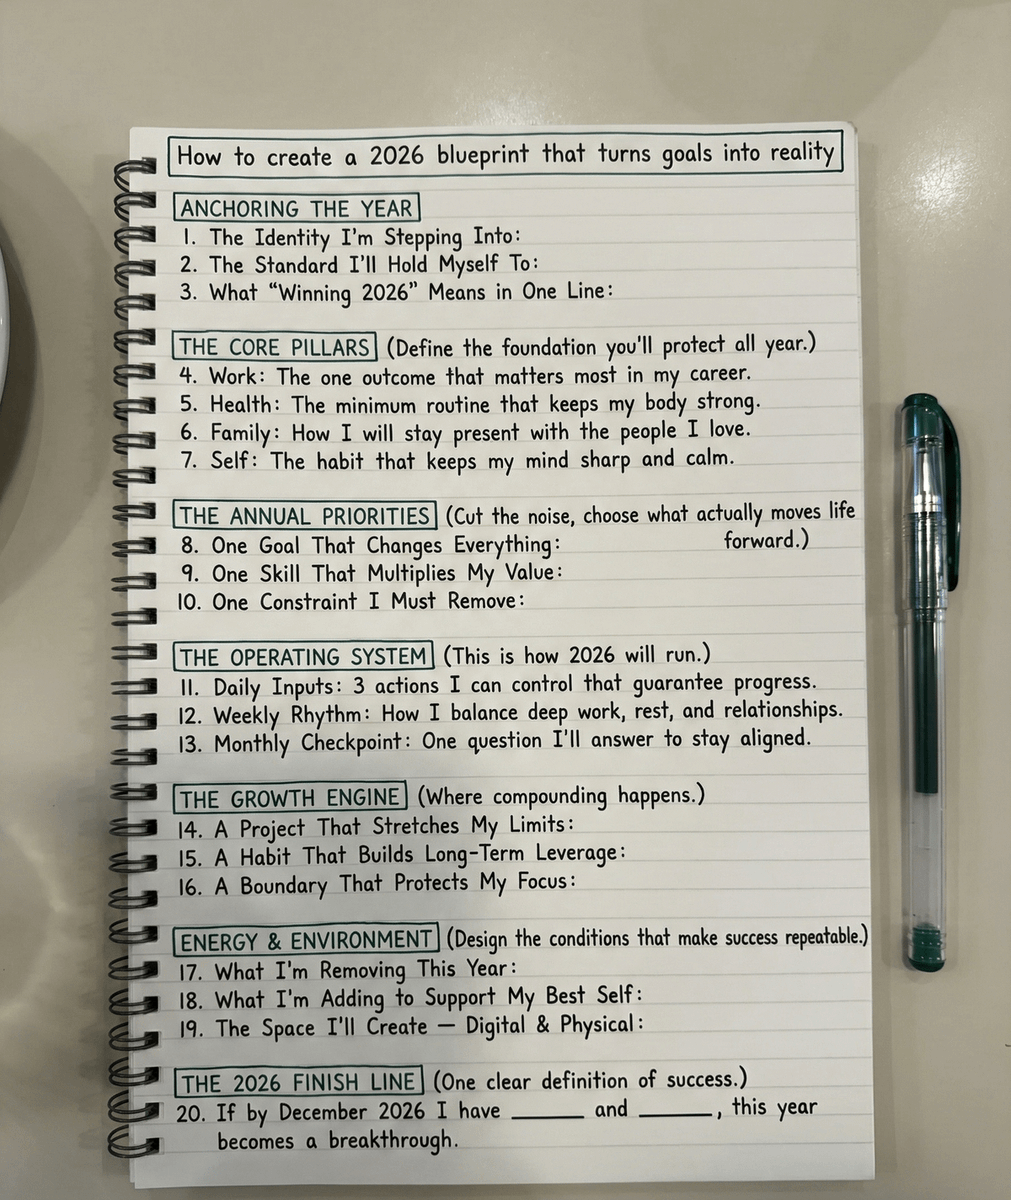 How to create a 2026 blueprint that turns goals into reality
ANCHORING THE YEAR
1. The Identity I'm Stepping Into:
2. The Standard I'll Hold Myself To:
3. What “Winning 2026” Means in One Line:
THE CORE PILLARS (Define the foundation you'll protect all year.)
4. Work: The one outcome that matters most in my career.
5. Health: The minimum routine that keeps my body strong.
6. Family: How I will stay present with the people I love.
7. Self: The habit that keeps my mind sharp and calm.
THE ANNUAL PRIORITIES (Cut the noise, choose what actually moves life
forward.)
8. One Goal That Changes Everything:
9. One Skill That Multiplies My Value:
10. One Constraint I Must Remove:
THE OPERATING SYSTEM (This is how 2026 will run.)
11. Daily Inputs: 3 actions I can control that guarantee progress.
12. Weekly Rhythm: How I balance deep work, rest, and relationships.
13. Monthly Checkpoint: One question I'll answer to stay aligned.
THE GROWTH ENGINE (Where compounding happens.)
14. A Project That Stretches My Limits:
15. A Habit That Builds Long-Term Leverage:
16. A Boundary That Protects My Focus:
ENERGY & ENVIRONMENT (Design the conditions that make success repeatable.)
17. What I'm Removing This Year:
18. What I'm Adding to Support My Best Self:
19. The Space I'll Create — Digital & Physical:
THE 2026 FINISH LINE (One clear definition of success.)
20. If by December 2026 I have ______ and ______, this year
becomes a breakthrough.